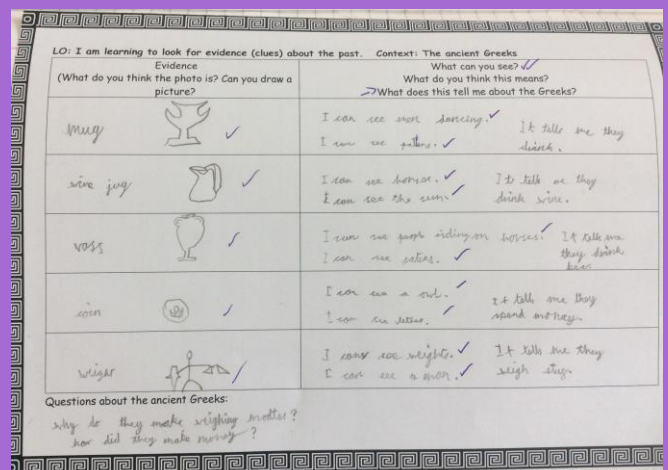 LO: I am learning to look for evidence (clues) about the past. Context: The ancient Greeks
Evidence
(What do you think the photo is? Can you draw a picture?
What can you see?
What do you think this means?
What does this tell me about the Greeks?
mug
I can see men dancing.
I can see pattens.
It tells me they
drink.
wine jug
I can see horses.
I can see the sun.
It tells me they
drink wine.
vass
I can see people riding on horses.
I can see
It tells me
they drink
beer
coin
I can see a owl.
I can see letters.
It tells me they
spend money.
I can see weights.
I can see a man.
It tells me they
Questions about the ancient Greeks:
why do they make weighing
how did they make money?